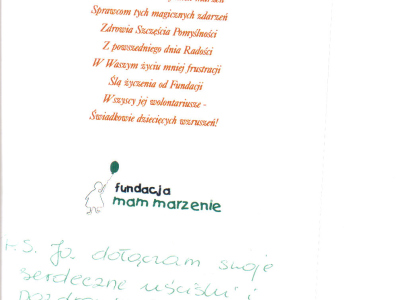 Sprawcom tych magicznych zdarzeń
Zdrowia Szczęścia Pomyślności
Z powszedniego dnia Radości
W Waszym życiu mniej frustracji
Ślą życzenia od Fundacji
Wszyscy jej wolontariusze -
Świadkowie dziecięcych wzruszeń!
fundacja
mam marzenie
P.S. Ja dołączam swoje
serdeczne uściski i